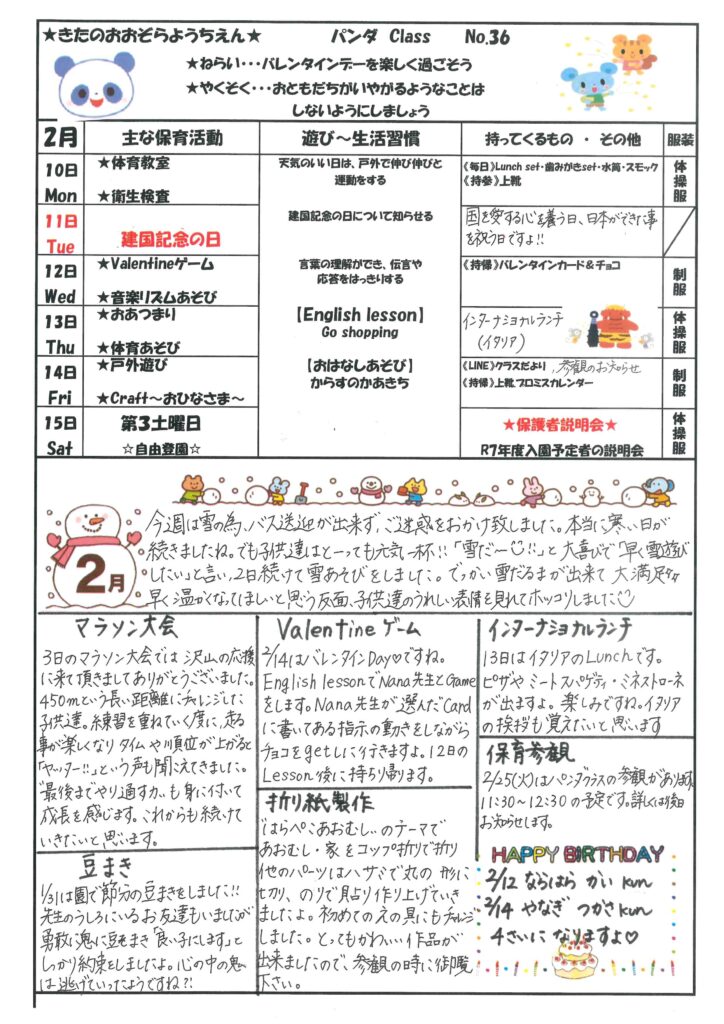 ★きたのおおぞらようちえん★ パンダ Class No.36
★ねらい・・・バレンタインデーを楽しく過ごそう
★やくそく・・・おともだちがいやがるようなことは
しないようにしましょう
2月 主な保育活動 遊び～生活習慣 持ってくるもの ・ その他 服装
10日 Mon
★体育教室
★衛生検査
天気のいい日は、戸外で伸び伸びと
運動をする
《毎日》Lunch set・歯みがきset・水筒・スモック
《持参》上靴
体操服
11日 Tue
建国記念の日
建国記念の日について知らせる
国を愛する心を養う日、日本ができた事
を祝う日ですよ!!
12日 Wed
★Valentineゲーム
★音楽リズムあそび
言葉の理解ができ、伝言や
応答をはっきりする
《持帰》バレンタインカード＆チョコ
制服
13日 Thu
★おあつまり
★体育あそび
【English lesson】
Go shopping
インターナショナルランチ
(イタリア)
体操服
14日 Fri
★戸外遊び
★Craft～おひなさま～
【おはなしあそび】
からすのかあきち
《LINE》クラスだより、参観のお知らせ
《持帰》上靴、プロミスカレンダー
制服
15日 Sat
第3土曜日
☆自由登園☆
★保護者説明会★
R7年度入園予定者の説明会
体操服
2月
今週は雪の為、バス送迎が出来ず、ご迷惑をおかけ致しました。本当に寒い日が
続きましたね。でも子供達はとーっても元気一杯!!「雪だー!!」と大喜びで「早く雪遊び
したい」と言い、2日続けて雪あそびをしました。でっかい雪だるまが出来て大満足
早く温かくなってほしいと思う反面、子供達のうれしい表情を見れてホッコリしました
マラソン大会
3日のマラソン大会では沢山の応援
に来て頂きましてありがとうございました。
450mという長い距離にチャレンジした
子供達。練習を重ねていく度に、走る
事が楽しくなりタイムや順位が上がると
「ヤッター!!」という声も聞こえてきました。
"最後までやり通す力"も身に付いて
成長を感じます。これからも続けて
いきたいと思います。
豆まき
1/31は園で節分の豆まきをしました!!
先生のうしろにいるお友達もいましたが
勇敢に鬼に豆をまき「良い子にします」と
しっかり約束をしましたよ。心の中の鬼
は逃げていったようですね?!
Valentineゲーム
2/14はバレンタインDay♡ですね。
English lessonでNana先生とGame
をします。Nana先生が選んだCard
に書いてある指示の動きをしながら
チョコをgetしに行きますよ。12日の
Lesson後に持ち帰ります。
折り紙製作
"はらぺこあおむし"のテーマで
あおむし・家をコップ折りで折り
他のパーツはハサミで丸の形に
切り、のりで貼り作り上げていき
ましたよ。初めてのえの具にもチャレンジ
しました。とってもかわいい作品が
出来ましたので、参観の時に御覧
下さい。
インターナショナルランチ
13日はイタリアのLunchです。
ピザやミートスパゲティ・ミネストローネ
が出ますよ。楽しみですね。イタリア
の挨拶も覚えたいと思います
保育参観
2/25(火)はパンダクラスの参観があります。
11:30～12:30の予定です。詳しくは後日
お知らせします。
HAPPY BIRTHDAY
2/12 ならはら かい kun
2/14 やなぎ つかさ kun
4さいになりますよ♡